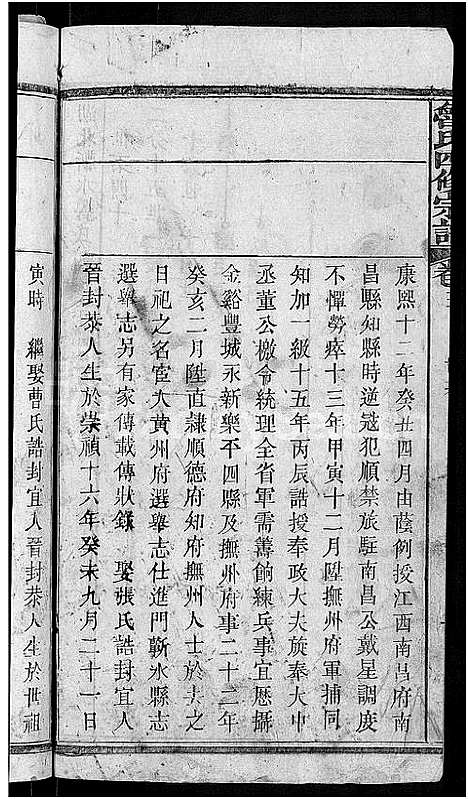 曾氏四修宗譜
康熙十二年癸丑四月由蔭例授江西南昌府南
昌縣知縣時逆寇犯順禁旅駐南昌公戴星調度
不憚勞瘁十三年甲寅十二月陞撫州府軍捕同
知加一級十五年丙辰誥授奉政大夫旋奉大中
丞董公檄令統理全省軍需籌餉練兵事宜歷攝
金谿豐城永新樂平四縣及撫州府事二十二年
癸亥二月陞直隸順德府知府撫州人士於去之
日祀之名宦入黃州府選舉志仕進門蘄水縣志
選舉志另有家傳載傳狀錄 娶張氏誥封宜人
晉封恭人生於崇禎十六年癸未九月二十一日
寅時 繼娶曹氏誥封宜人晉封恭人生於世祖